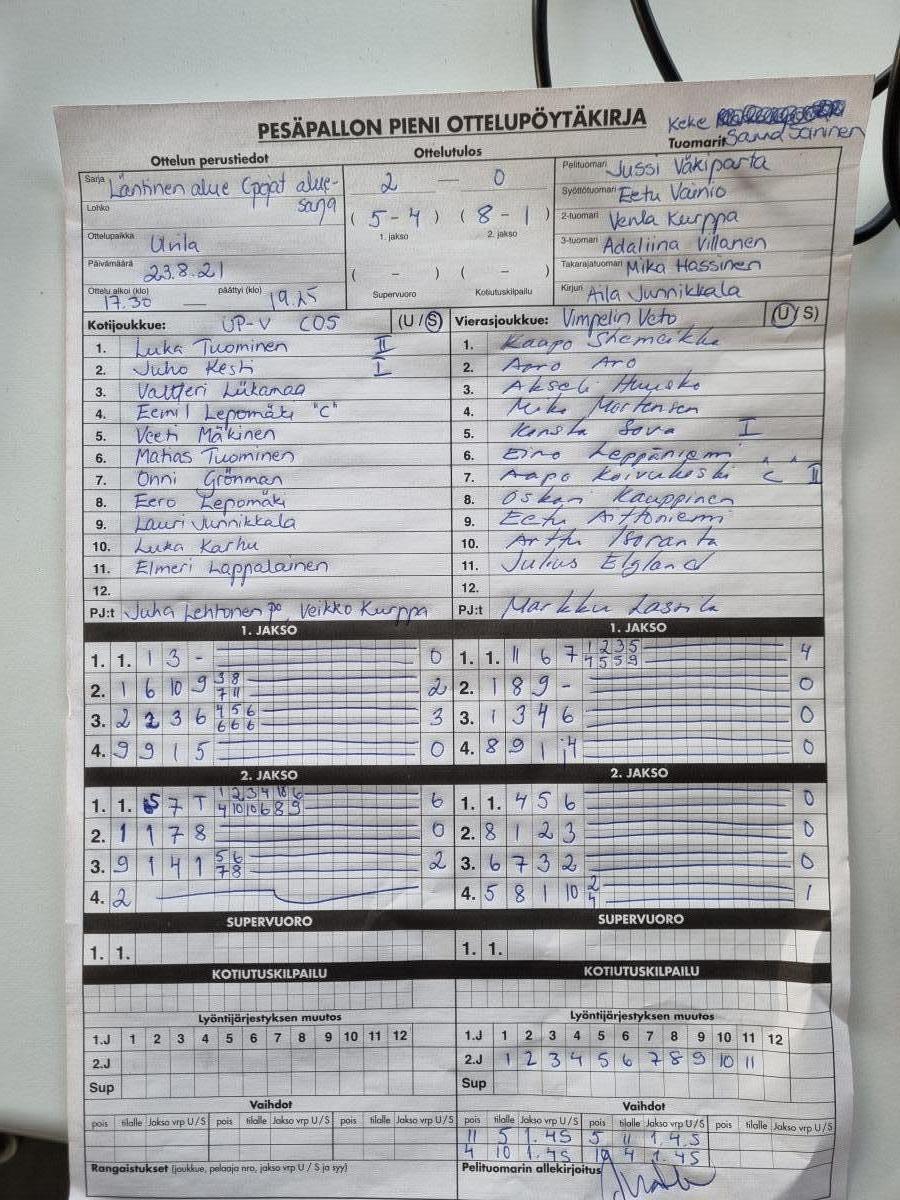 PESÄPALLON PIENI OTTELUPÖYTÄKIRJA
Keke
Tuomarit Sanna Joninen
Ottelun perustiedot
Ottelutulos
Sarja Läntinen alue Cpojat alue-
sarja
Lohko
Ottelupaikka Urila
Päivämäärä 23.8.21
Ottelu alkoi (klo) päättyi (klo)
17.30 — 19.25
2 — 0
( 5 - 4 ) ( 8 - 1 )
1. jakso 2. jakso
( - ) ( - )
Supervuoro Kotiutuskilpailu
Pelituomari Jussi Väkiparta
Syöttötuomari Eetu Vainio
2-tuomari Venla Kurppa
3-tuomari Adaliina Villanen
Takarajatuomari Mika Hassinen
Kirjuri Aila Junnikkala
Kotijoukkue: UP-V C05 (U / S)
1. Luka Tuominen II
2. Juho Kesti I
3. Valtteri Liikamaa
4. Eemil Lepomäki "C"
5. Veeti Mäkinen
6. Matias Tuominen
7. Onni Grönman
8. Eero Lepomäki
9. Lauri Junnikkala
10. Luka Karhu
11. Elmeri Lappalainen
12.
PJ:t Juha Lehtonen po, Veikko Kurppa
Vierasjoukkue: Vimpelin Veto (U / S)
1. Kaapo Shemeikka
2. Aaro Aro
3. Akseli Huusko
4. Miko Mortensen
5. Konsta Sova I
6. Eino Leppäniemi
7. Aapo Koivukoski "C" II
8. Oskari Kauppinen
9. Eetu Aittoniemi
10. Arttu Isoranta
11. Julius Elgland
12.
PJ:t Markku Lassila
1. JAKSO
1. 1. 1 3 - 0
2. 1 6 10 9 3 8 2
7 11
3. 2 2 3 6 4 5 6 3
6 6 6
4. 9 9 1 5 0
1. JAKSO
1. 1. 11 6 7 1 2 3 5 4
4 5 5 9
2. 1 8 9 - 0
3. 1 3 4 6 0
4. 8 9 1 0
2. JAKSO
1. 1. 5 7 T 1 2 3 4 10 6 6
4 10 10 6 8 9
2. 1 1 7 8 0
3. 9 1 4 1 5 6 2
7 8
4. 2
2. JAKSO
1. 1. 4 5 6 0
2. 8 1 2 3 0
3. 6 7 3 2 0
4. 5 8 1 10 2 1
4
SUPERVUORO
1. 1.
SUPERVUORO
1. 1.
KOTIUTUSKILPAILU
KOTIUTUSKILPAILU
Lyöntijärjestyksen muutos
1.J 1 2 3 4 5 6 7 8 9 10 11 12
2.J
Sup
Lyöntijärjestyksen muutos
1.J 1 2 3 4 5 6 7 8 9 10 11 12
2.J 1 2 3 4 5 6 7 8 9 10 11
Sup
Vaihdot
pois tilalle Jakso vrp U / S pois tilalle Jakso vrp U / S pois tilalle Jakso vrp U / S
Vaihdot
pois tilalle Jakso vrp U / S pois tilalle Jakso vrp U / S pois tilalle Jakso vrp U / S
11 5 1.4S 5 11 1.4.S
4 10 1.4S 10 4 1.4S
Rangaistukset (joukkue, pelaaja nro, jakso vrp U / S ja syy)
Pelituomarin allekirjoitus